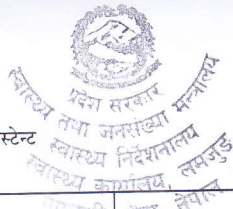 प्रदेश सरकार
स्वास्थ्य तथा जनसंख्या मन्त्रालय
स्वास्थ्य निर्देशनालय
स्वास्थ्य कार्यालय, लमजुङ
नेपाल
स्टेन्ट